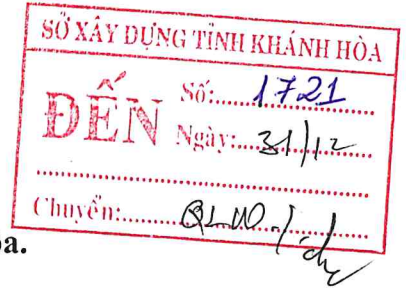 SỞ XÂY DỰNG TỈNH KHÁNH HÒA
ĐẾN
Số:.......1721
Ngày:...31/12
Chuyển:
òa.